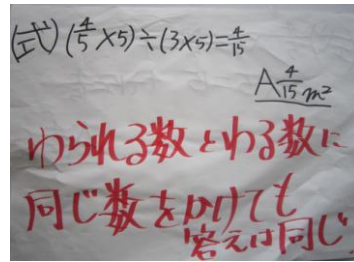 (式)(4/5×5)÷(3×5)=4/15
A 4/15 m²
わられる数とわる数に
同じ数をかけても
答えは同じ